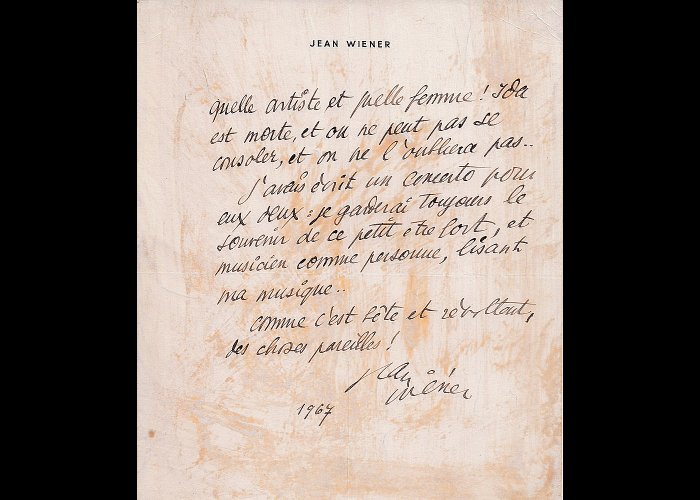 JEAN WIENER
quelle artiste et quelle femme ! Ida
est morte, et on ne peut pas se
consoler, et on ne l'oubliera pas..
j'avais écrit un concerto pour
eux deux : je garderai toujours le
souvenir de ce petit être fort, et
musicien comme personne, lisant
ma musique..
comme c'est bête et révoltant,
des choses pareilles !
Jean
Wiéner
1967